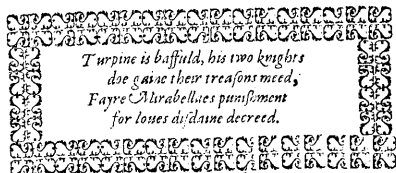 Turpine is baffuld, his two knights
doe gaine their treaſons meed,
Fayre Mirabellaes puniſhment
for loues diſdaine decreed.